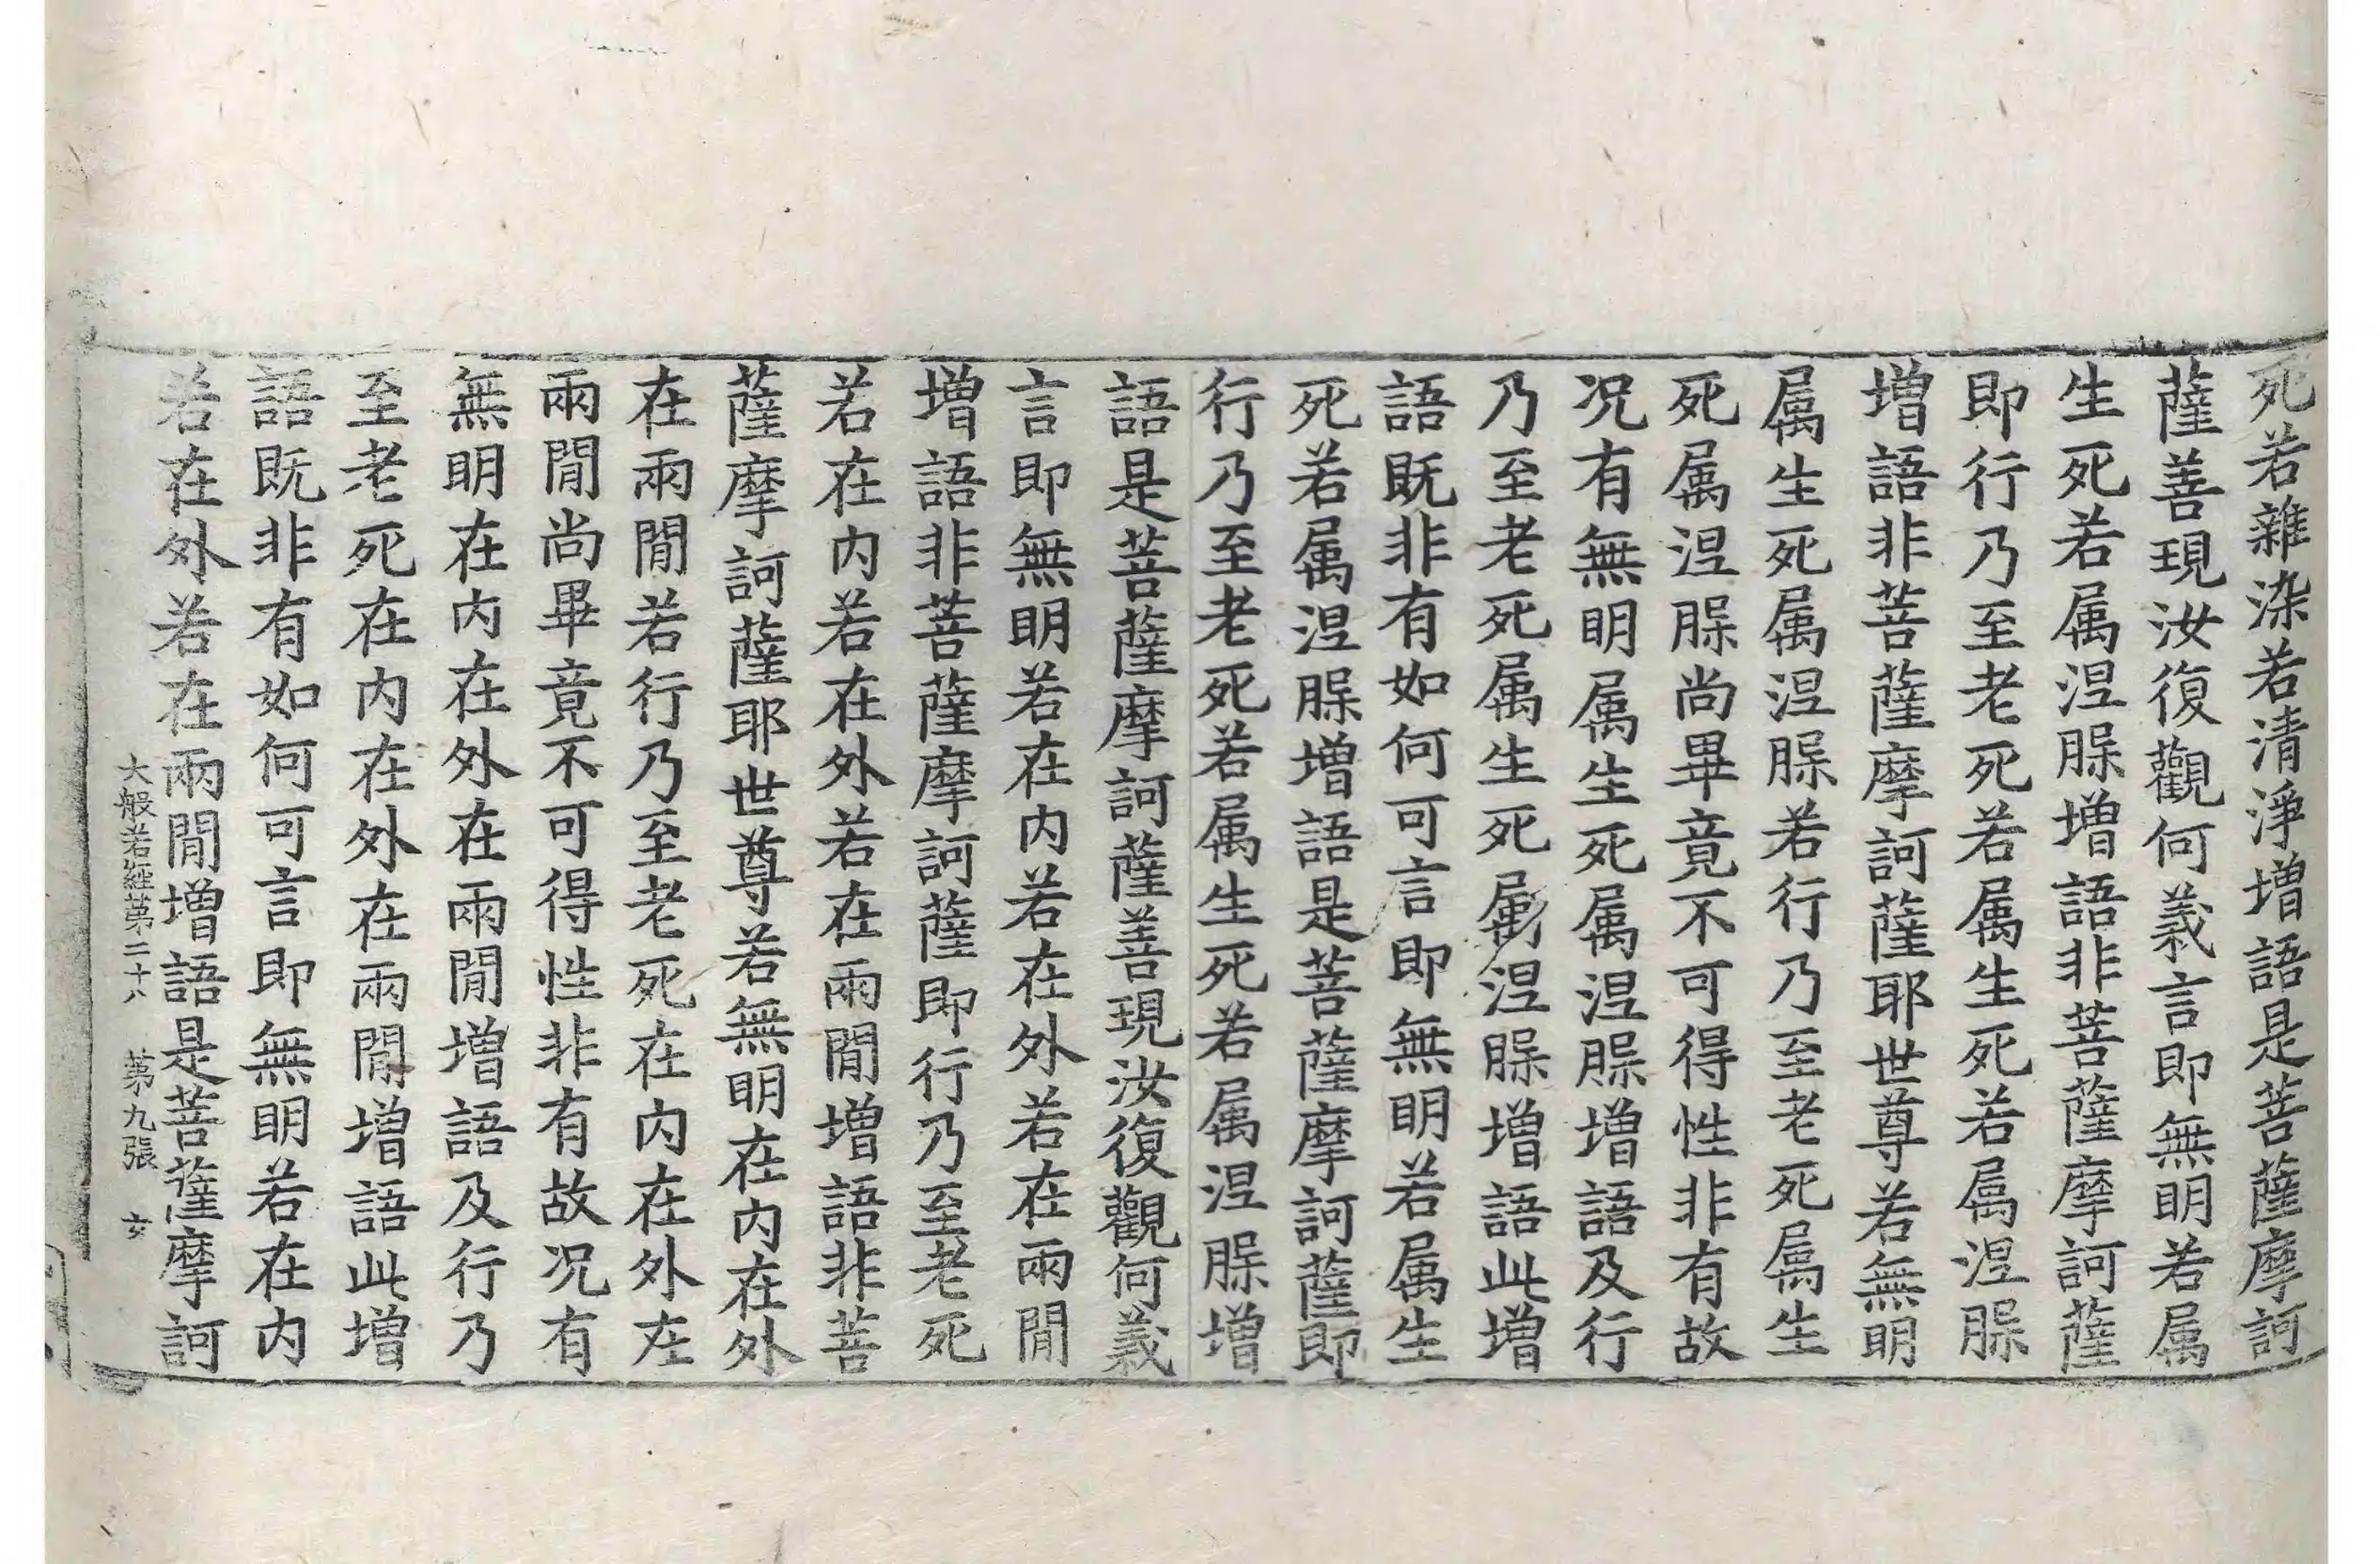 死若雜染若清淨增語是菩薩摩訶
薩善現汝復觀何義言即無明若属
生死若属涅槃增語非菩薩摩訶薩
即行乃至老死若属生死若属涅槃
增語非菩薩摩訶薩耶世尊若無明
属生死属涅槃若行乃至老死属生
死属涅槃尚畢竟不可得性非有故
况有無明属生死属涅槃增語及行
乃至老死属生死属涅槃增語此增
語既非有如何可言即無明若属生
死若属涅槃增語是菩薩摩訶薩即
行乃至老死若属生死若属涅槃增
語是菩薩摩訶薩善現汝復觀何義
言即無明若在內若在外若在兩閒
增語非菩薩摩訶薩即行乃至老死
若在內若在外若在兩閒增語非菩
薩摩訶薩耶世尊若無明在內在外
在兩閒若行乃至老死在內在外在
兩閒尚畢竟不可得性非有故况有
無明在內在外在兩閒增語及行乃
至老死在內在外在兩閒增語此增
語既非有如何可言即無明若在內
若在外若在兩閒增語是菩薩摩訶
大般若經第二十八 第九張 女